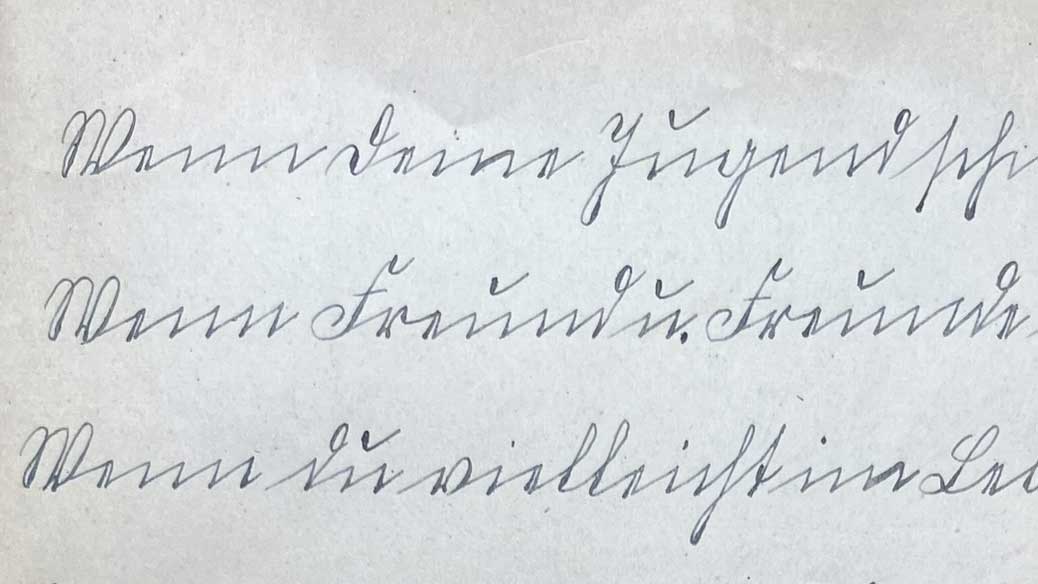 Wenn deine Jugend
Wenn Freund u. Freunde
Wenn du vielleicht im